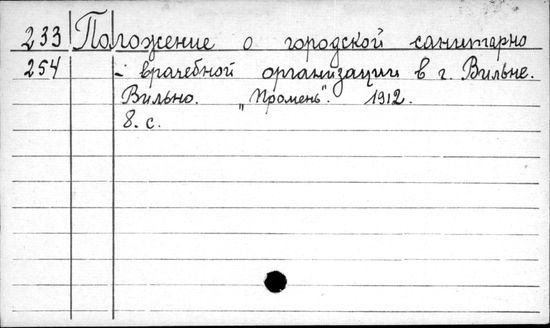 233 Положение о городской санитарно
254 - врачебной организации в г. Вильне.
Вильно. „Промень". 1912.
8. с.